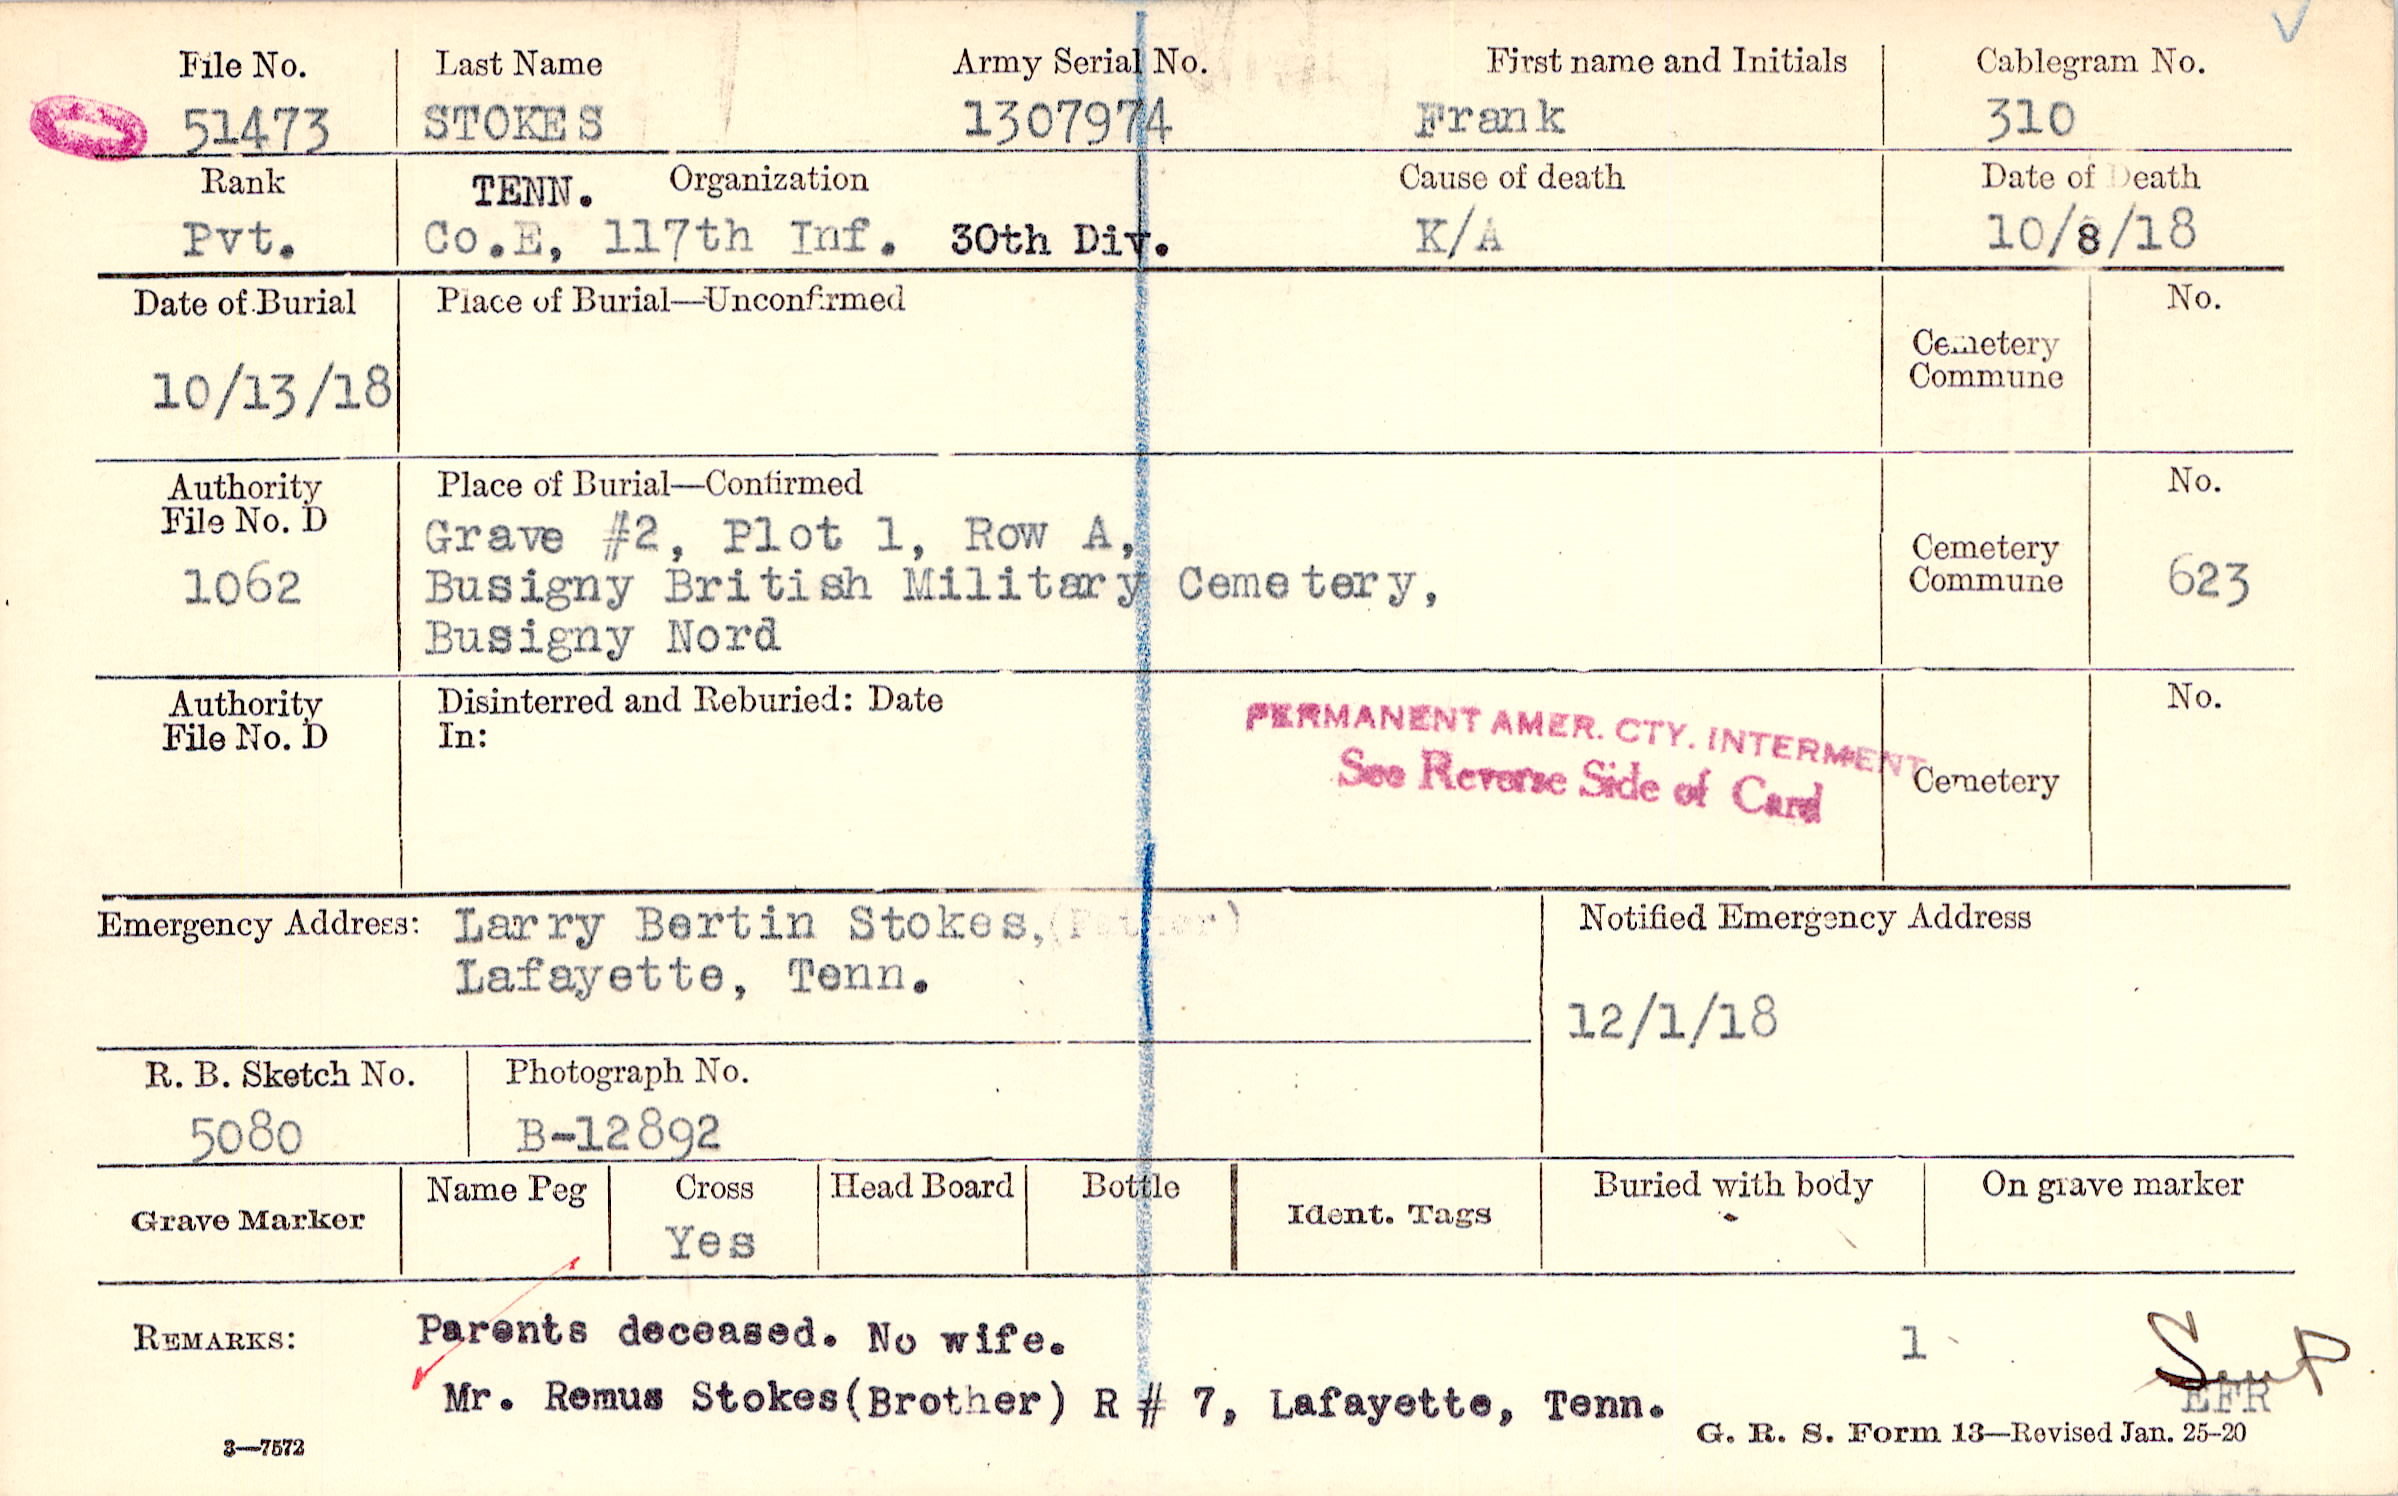 File No. Last Name Army Serial No. First name and Initials Cablegram No.
51473 STOKES 1307974 Frank 310
Rank TENN. Organization Cause of death Date of Death
Pvt. Co.E, 117th Inf. 30th Div. K/A 10/8/18
Date of Burial Place of Burial—Unconfirmed No.
Cemetery
Commune
10/13/18
Authority Place of Burial—Confirmed No.
File No. D
Grave #2, Plot 1, Row A,
1062 Busigny British Military Cemetery, Cemetery
Commune 623
Busigny Nord
Authority Disinterred and Reburied: Date No.
File No. D In:
PERMANENT AMER. CTY. INTERMENT
See Reverse Side of Card
Cemetery
Emergency Address: Larry Bertin Stokes,(Father) Notified Emergency Address
Lafayette, Tenn.
12/1/18
R. B. Sketch No. Photograph No.
5080 B-12892
Grave Marker Name Peg Cross Head Board Bottle Ident. Tags Buried with body On grave marker
Yes
REMARKS: Parents deceased. No wife. 1
Mr. Remus Stokes(Brother) R # 7, Lafayette, Tenn.
EFR
3—7572 G. R. S. Form 13—Revised Jan. 25-20